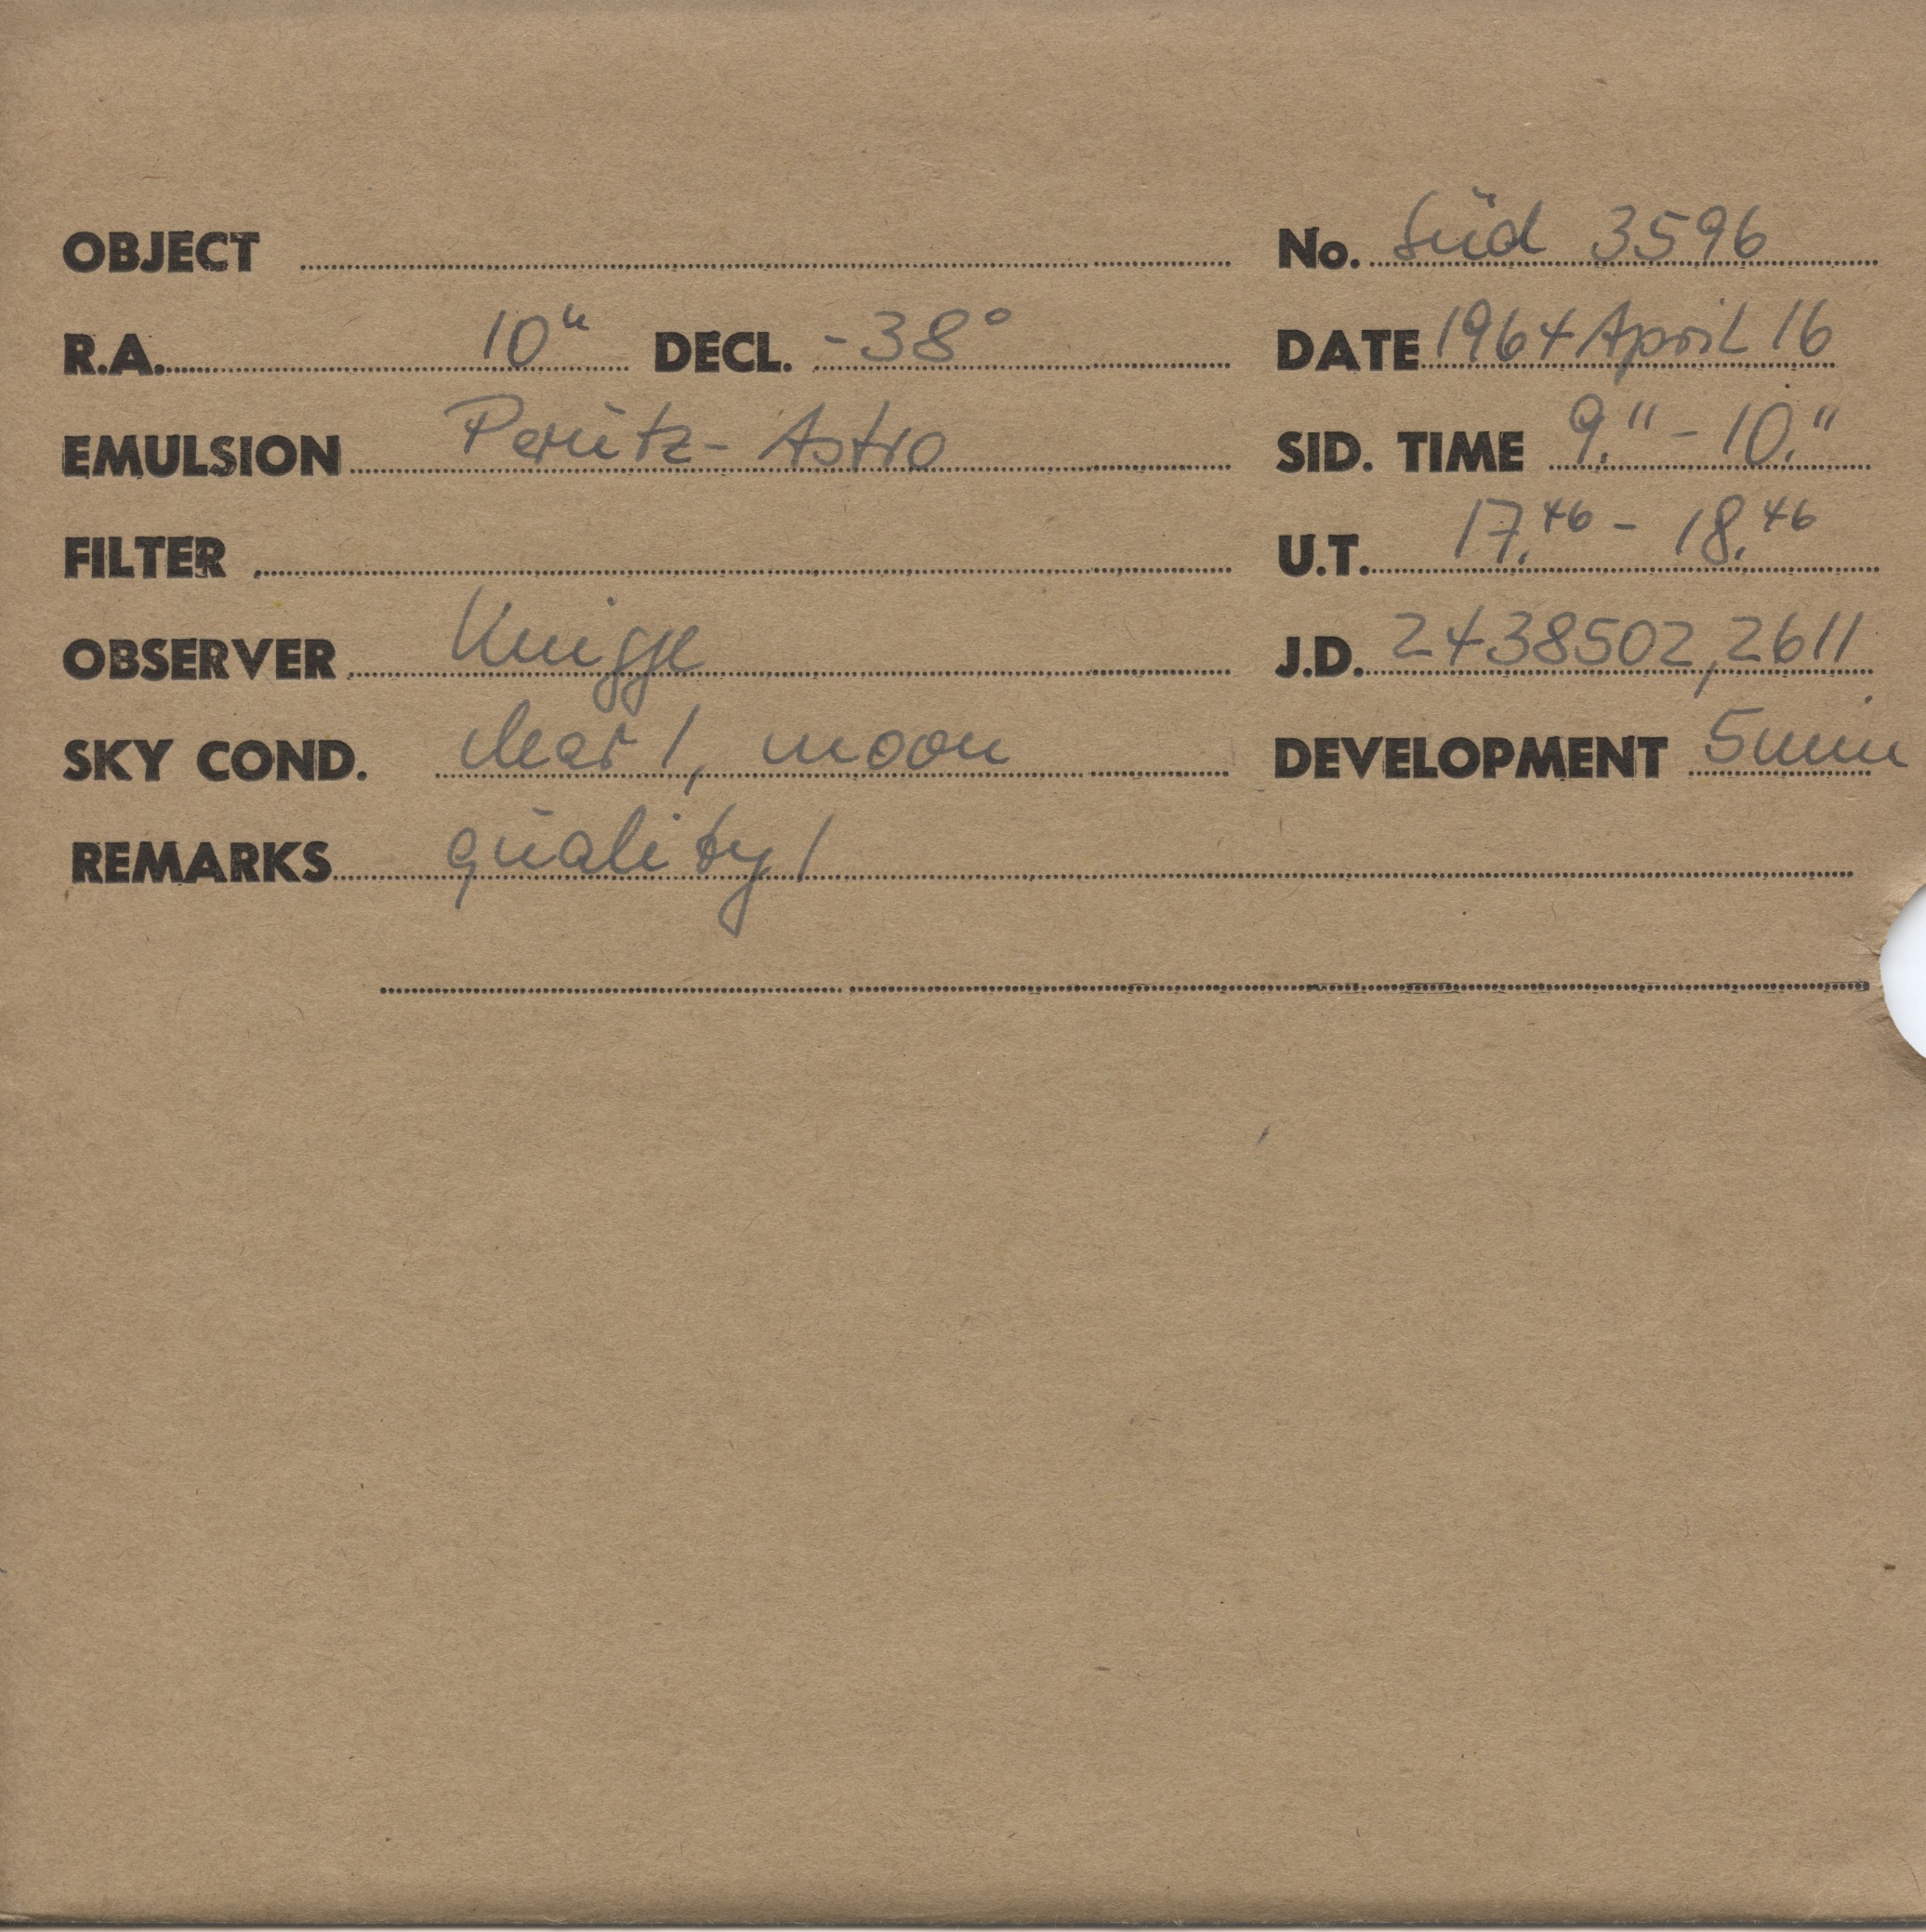 OBJECT No. Süd 3596
R.A. 10h DECL. -38°
DATE 1964 April 16
EMULSION Perutz-Astro
SID. TIME 9.11 - 10.11
FILTER
U.T. 17.46 - 18.46
OBSERVER Knigge
J.D. 2438502,2611
SKY COND. clear 1, moon
DEVELOPMENT 5min
REMARKS quality 1